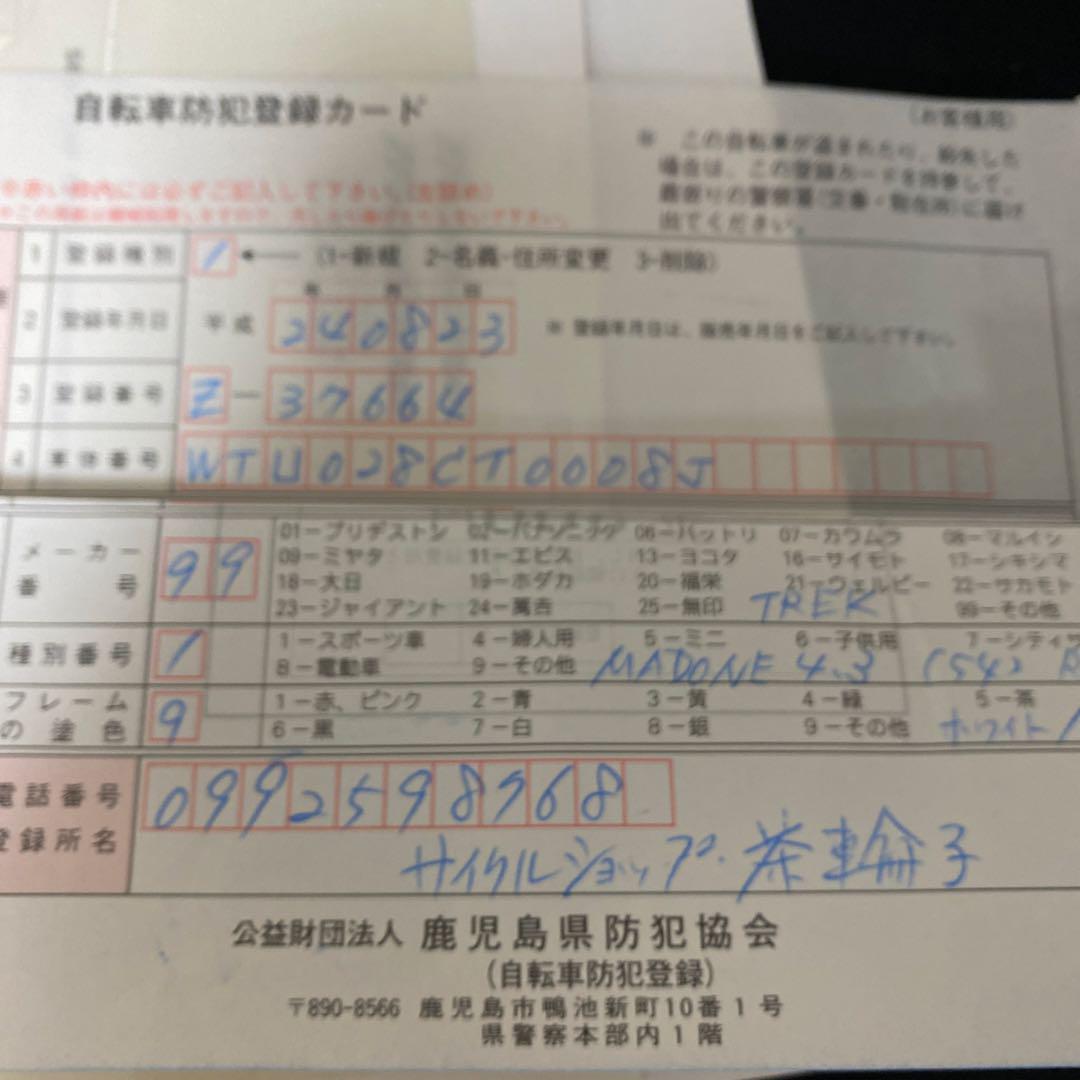 自転車防犯登録カード
(お客様用)
※ この自転車が盗まれたり、紛失した
場合は、この登録カードを持参して、
最寄りの警察署(交番・駐在所)に届け
出てください。
※赤い枠内には必ずご記入して下さい。(左詰め)
1 登録種別 1 ← (1-新規 2-名義・住所変更 3-削除)
年 月 日
2 登録年月日 平成 240823 ※ 登録年月日は、販売年月日をご記入して下さい。
3 登録番号 Z-37664
4 車体番号 WTU028CT0008J
メーカー番号 99
01-ブリヂストン 02-パナソニック 06-ハットリ 07-カワムラ 08-マルイシ
09-ミヤタ 11-エビス 13-ヨコタ 16-サイモト 17-シキシマ
18-大日 19-ホダカ 20-福栄 21-ウェルビー 22-サカモト
23-ジャイアント 24-萬吉 25-無印 TREK 99-その他
種別番号 1
1-スポーツ車 4-婦人用 5-ミニ 6-子供用 7-シティサ
8-電動車 9-その他 MADONE 4.3 (54)
フレームの塗色 9
1-赤、ピンク 2-青 3-黄 4-緑 5-茶
6-黒 7-白 8-銀 9-その他 ホワイト/
電話番号 0992598768
登録所名 サイクルショップ・茶輪子
公益財団法人 鹿児島県防犯協会
(自転車防犯登録)
〒890-8566 鹿児島市鴨池新町10番1号
県警察本部内1階